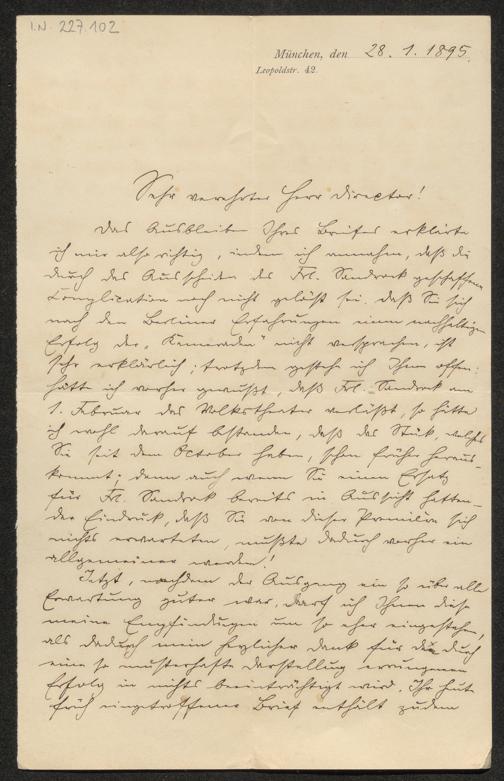 I.N. 227.102
München, den 28. 1. 1895.
Leopoldstr. 42.
Sehr verehrter Herr Director!
Das Ausbleiben Ihres Briefes erklärte
ich mir also richtig, indem ich annahm, daß die
durch das Ausscheiden des Frl. Sandrock geschaffene
Complication noch nicht gelöst sei. Daß Sie sich
nach den Berliner Erfahrungen einen nachhaltigen
Erfolg der „Kameraden" nicht versprachen, ist
sehr erklärlich; trotzdem gestehe ich Ihnen offen:
hätte ich vorher gewußt, daß Frl. Sandrock am
1. Februar das Volkstheater verläßt, so hätte
ich wohl darauf bestanden, daß das Stück, welches
Sie seit dem October haben, schon früher heraus-
kommt; denn auch wenn Sie einen Ersatz
für Frl. Sandrock bereits in Aussicht hatten –
der Eindruck, daß Sie von dieser Première sich
nichts erwarteten, mußte dadurch vorher ein
allgemeiner werden!
Jetzt, nachdem der Ausgang ein so über alle
Erwartung guter war, darf ich Ihnen diese
meine Empfindungen um so eher eingestehen,
als dadurch mein herzlicher Dank für den durch
eine so musterhafte Darstellung errungenen
Erfolg in nichts beeinträchtigt wird. Ihr heute
früh eingetroffener Brief enthält zudem